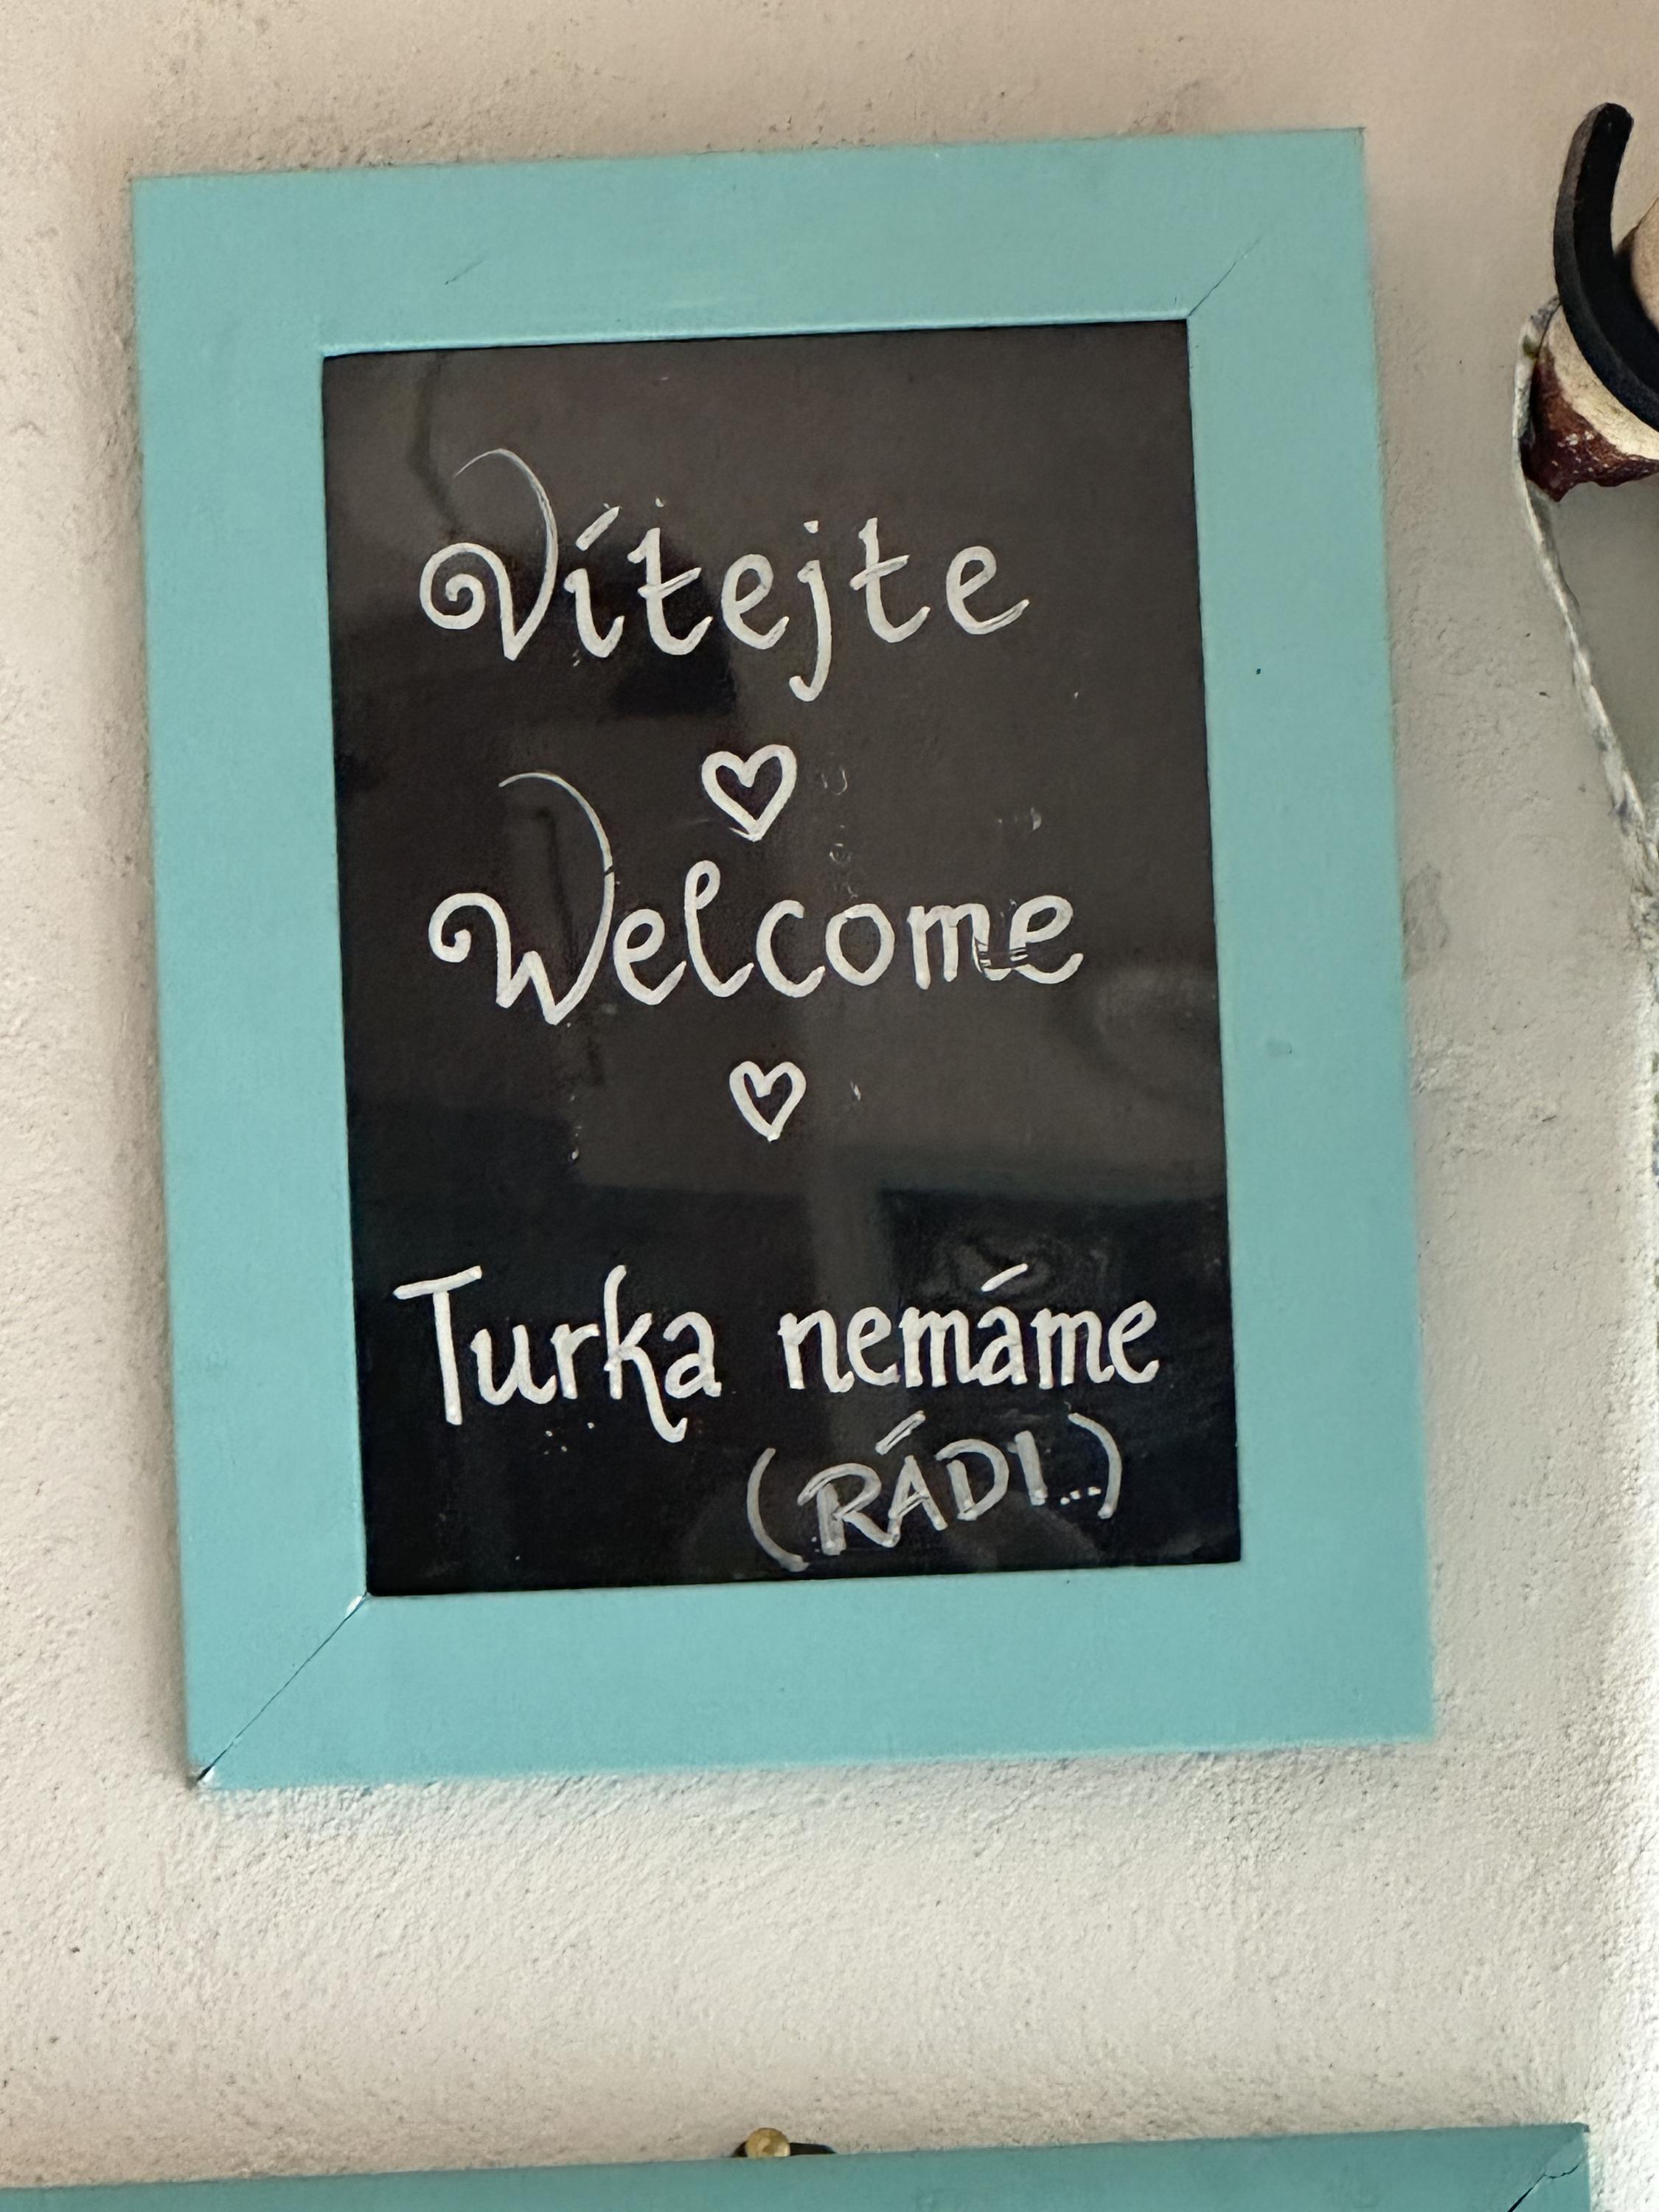 Vítejte
Welcome
Turka nemáme
(RÁDI...)